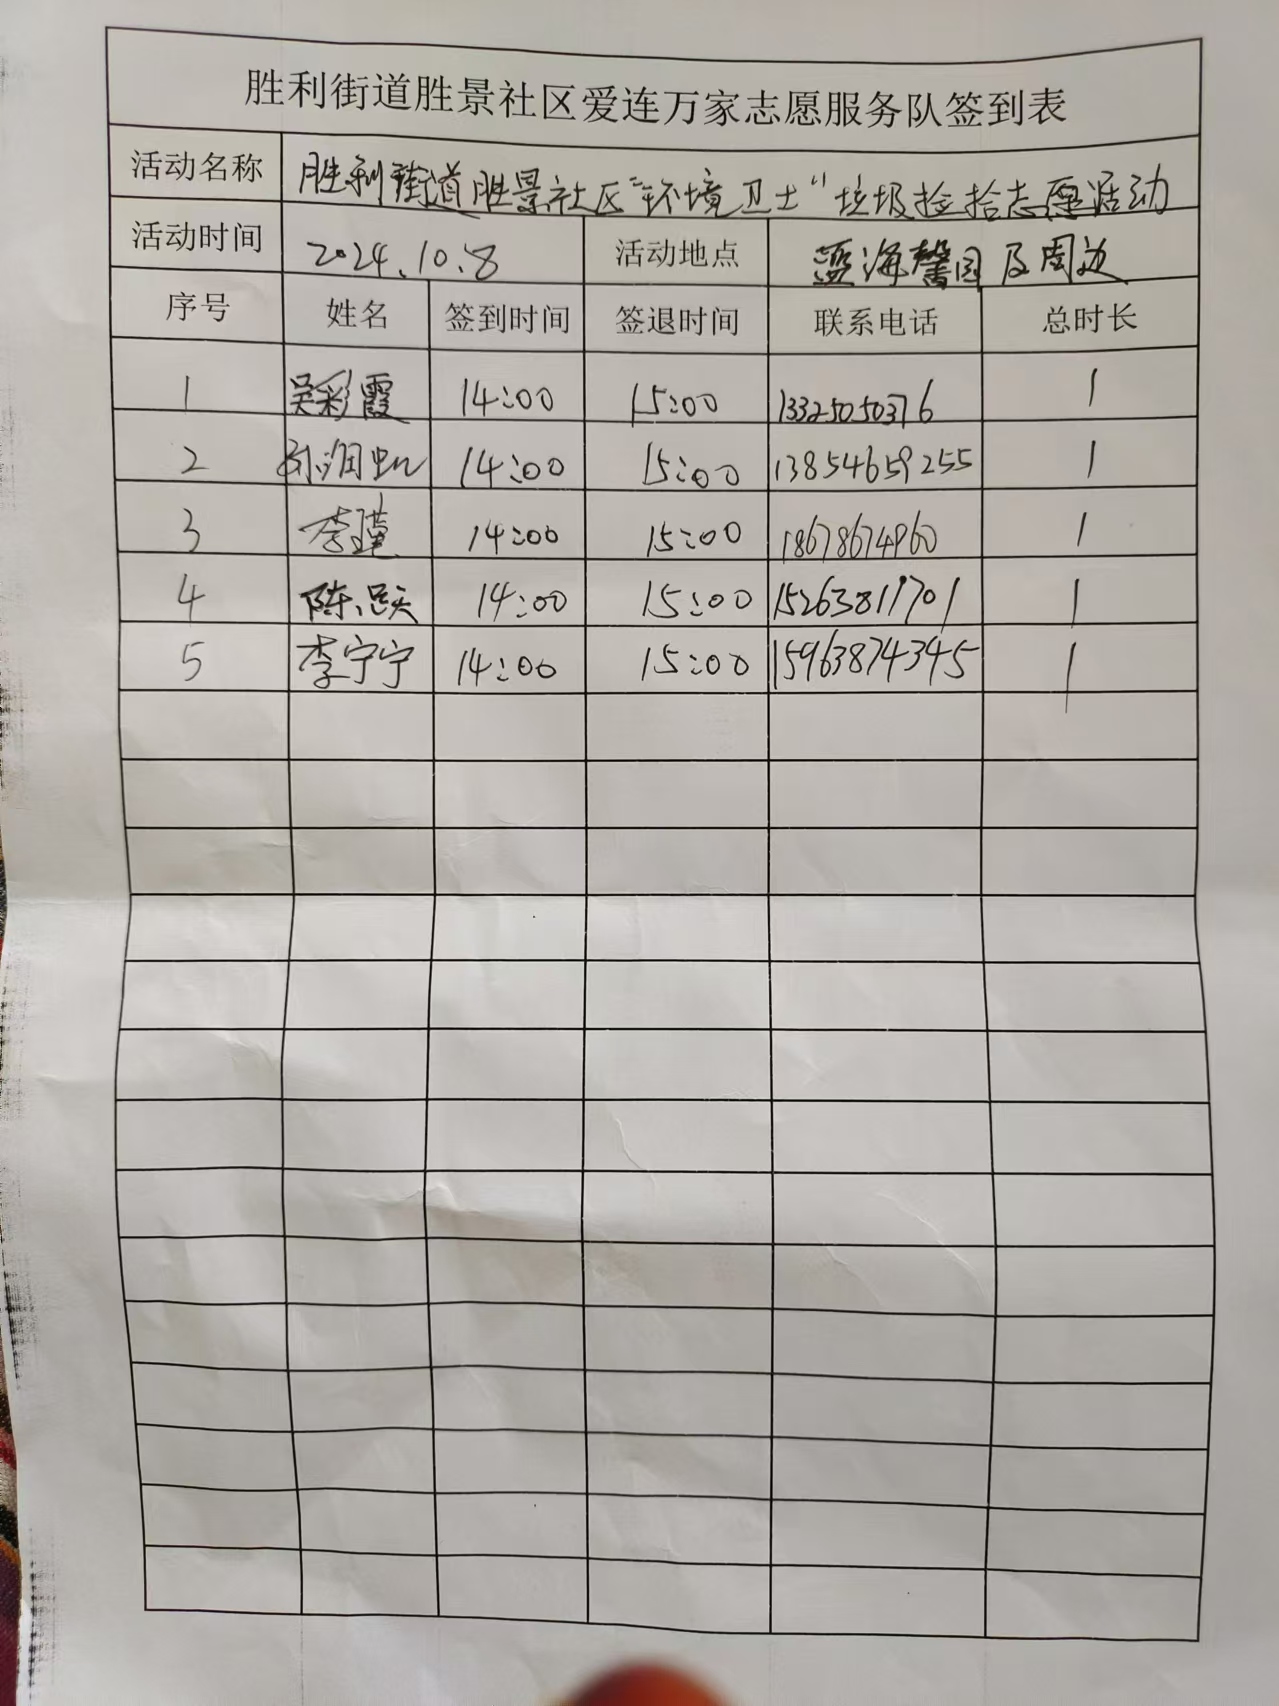 胜利街道胜景社区爱连万家志愿服务队签到表
活动名称 胜利街道胜景社区“环境卫士”垃圾捡拾志愿活动
活动时间 2024.10.8 活动地点 蓝海馨园及周边
序号 姓名 签到时间 签退时间 联系电话 总时长
1 吴彩霞 14:00 15:00 13325050376 1
2 14:00 15:00 13854659255 1
3 李瑾 14:00 15:00 18678674960 1
4 14:00 15:00 15263811701 1
5 李宁宁 14:00 15:00 15963874345 1